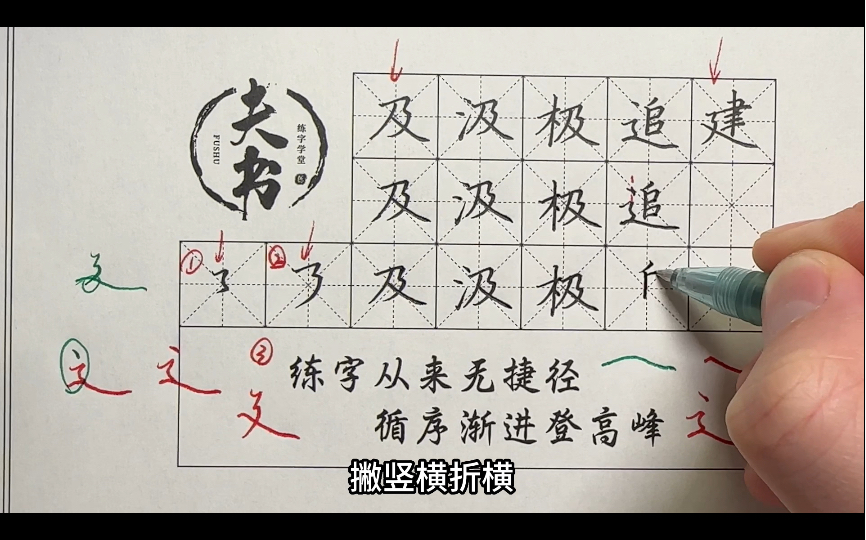 夫书
练字学堂
FUSHU
及汲极追建
及汲极追
①②及汲极
③
练字从来无捷径
循序渐进登高峰
撇竖横折横